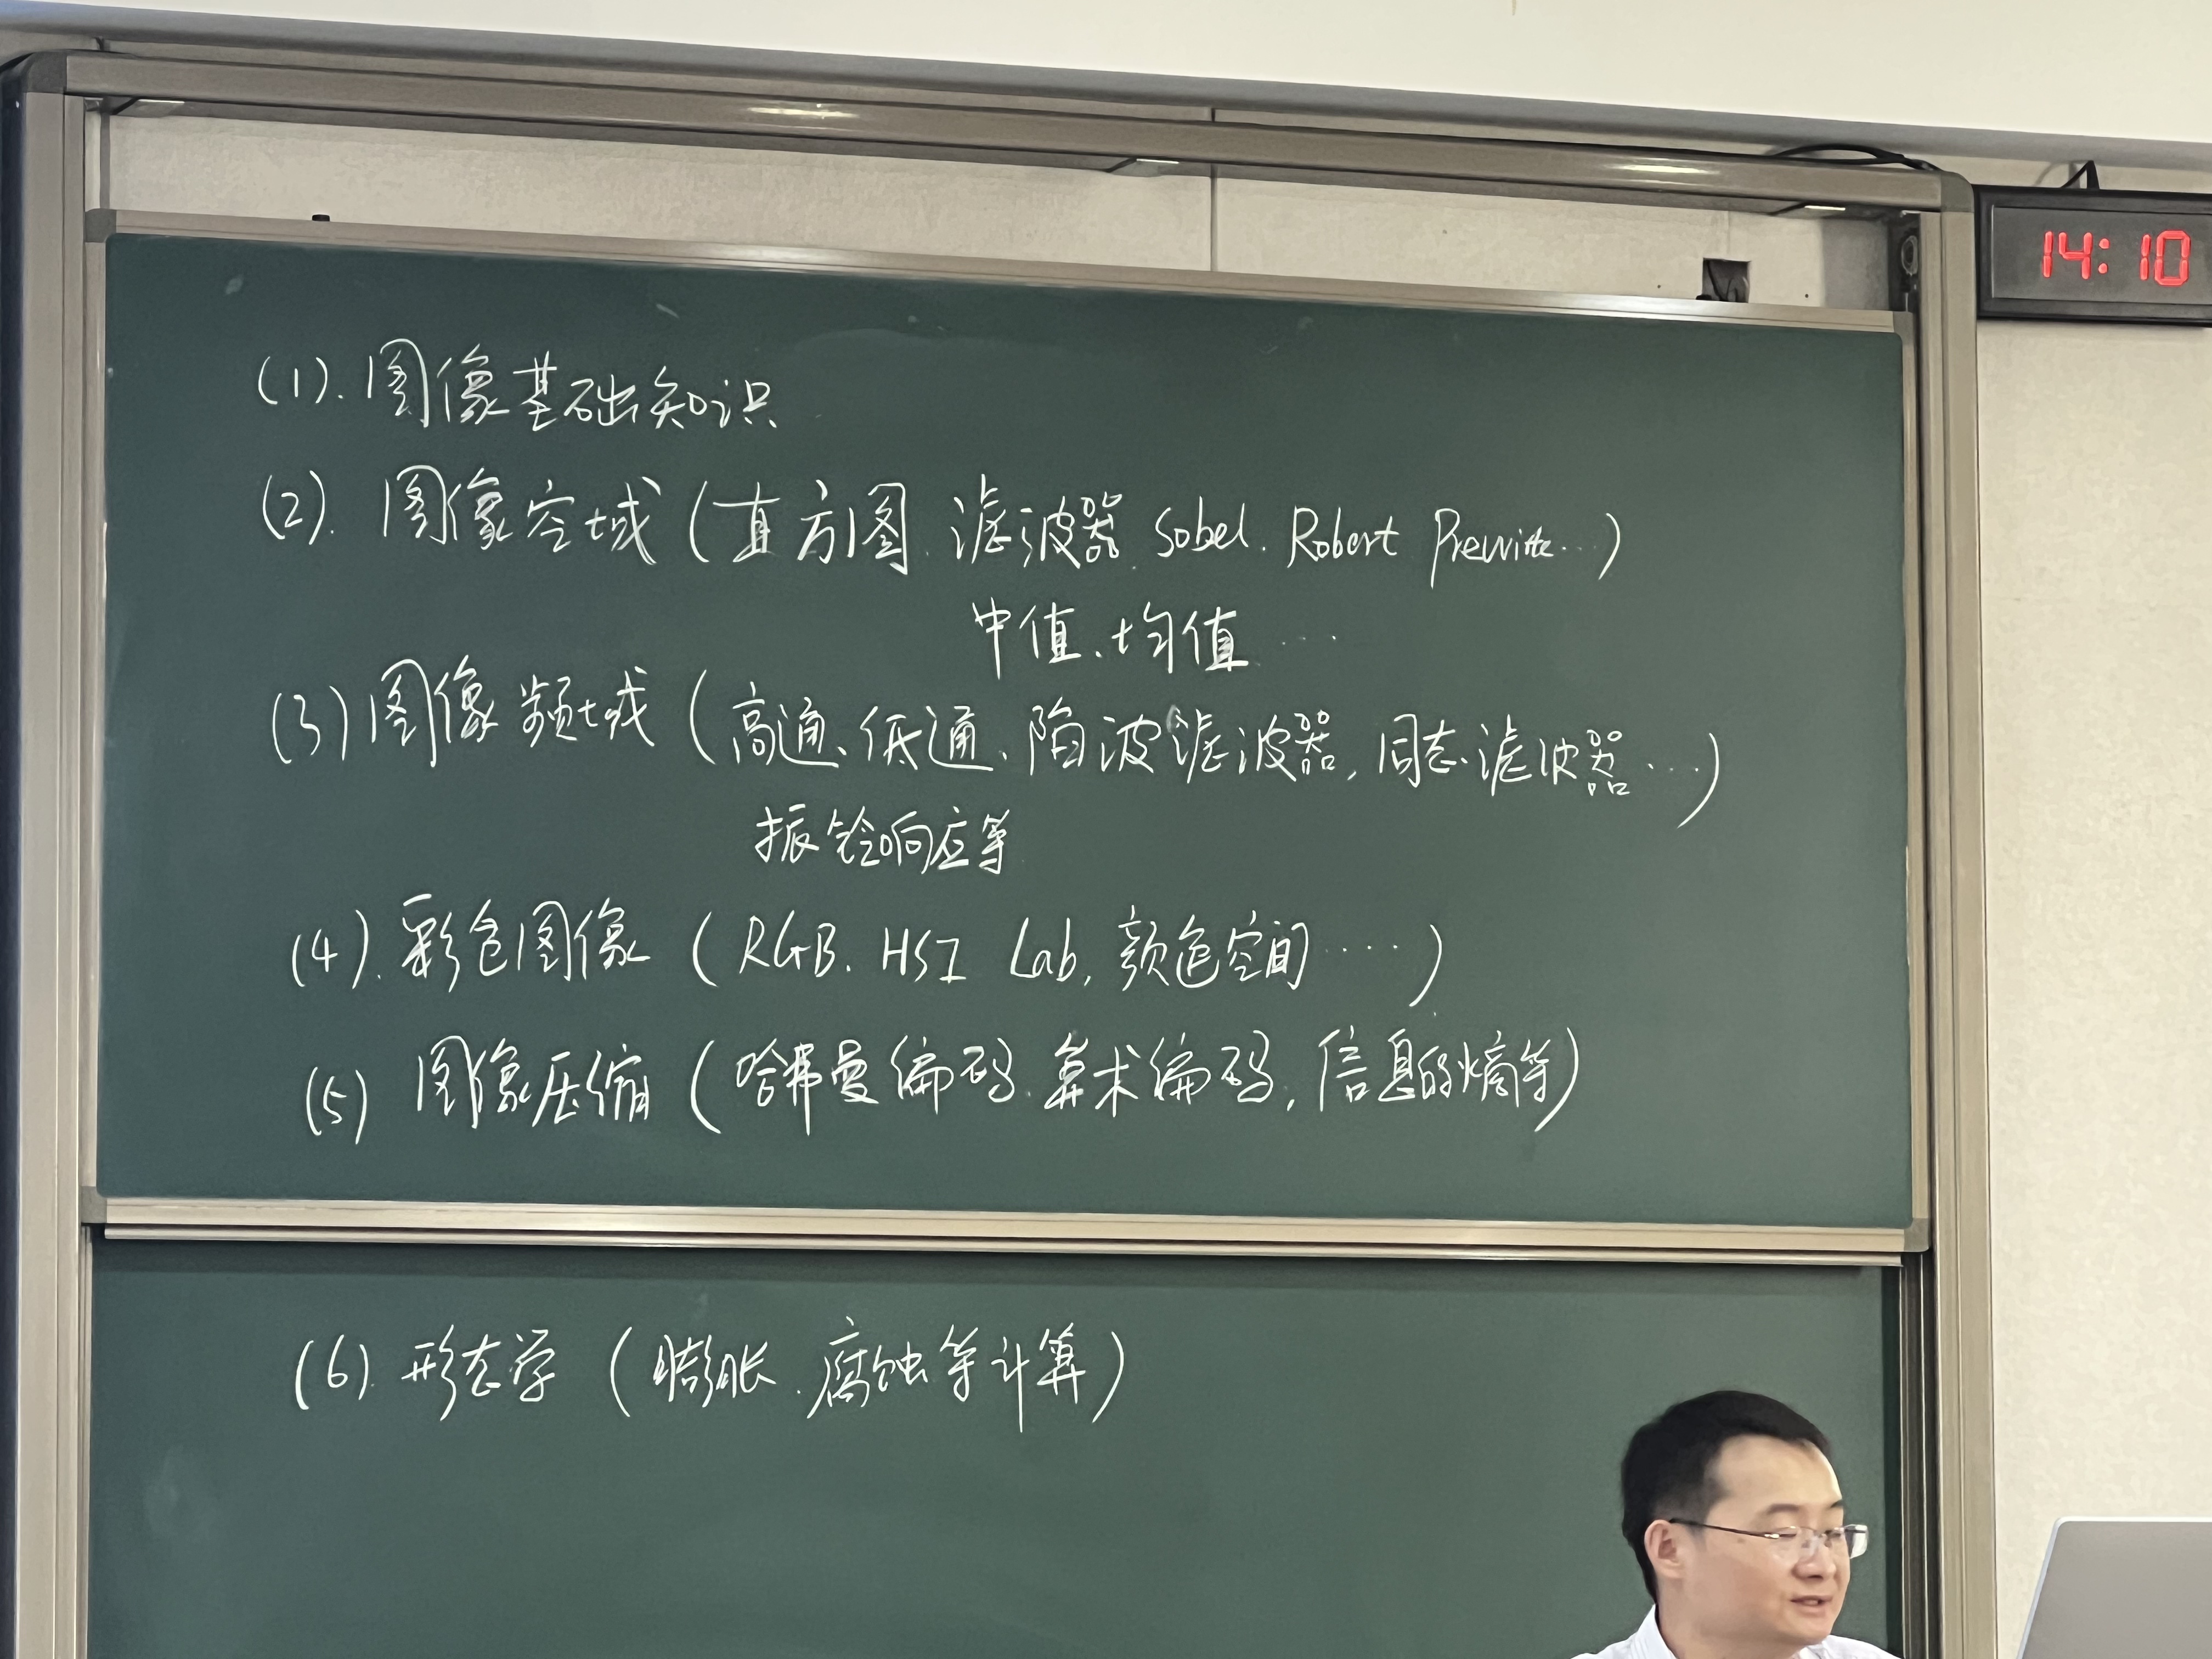 14:10
(1). 图像基础知识
(2). 图像空域 (直方图. 滤波器. Sobel. Robert Prewitt...)
中值、均值...
(3) 图像频域 (高通、低通、陷波滤波器, 同态滤波器...)
振铃响应等
(4). 彩色图像 (RGB. HSI Lab, 颜色空间....)
(5) 图像压缩 (哈弗曼编码. 算术编码, 信息的熵等)
(6). 形态学 (膨胀. 腐蚀等计算)